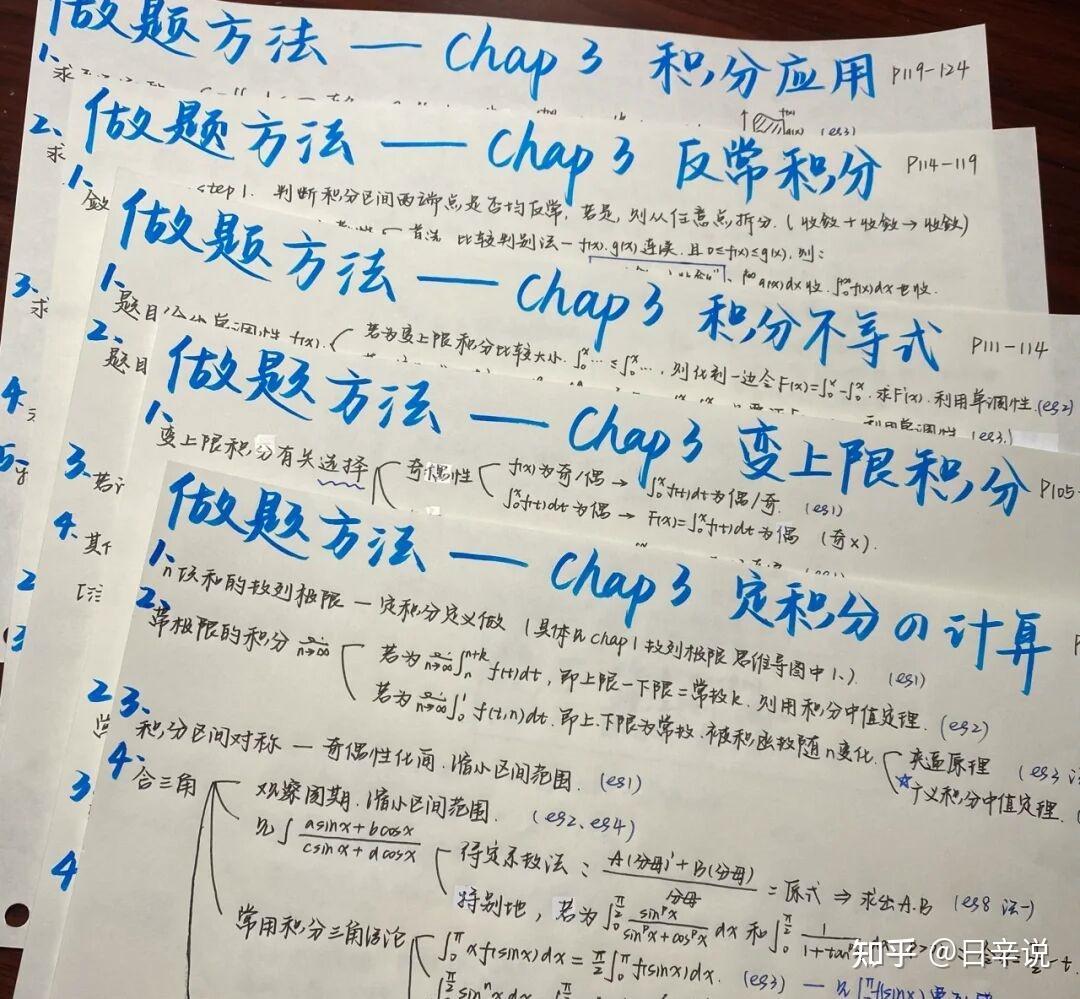 做题方法 — Chap 3 积分应用 P119-124
1、
求
2、
求
3、
求
4、
5、
做题方法 — Chap 3 反常积分 P114-119
1、
敛 step 1. 判断积分区间两端点是否均反常, 若是, 则从任意点拆分. (收敛+收敛→收敛)
首选 比较判别法 — f(x). g(x) 连续. 且 0≤f(x)≤g(x), 则:
g(x)dx 收. ∫f(x)dx 也收.
做题方法 — Chap 3 积分不等式 P111-114
1、
题目 单调性 f(x). 若为变上限积分比较大小. ∫₀ˣ … ≤ ∫₀ˣ …, 则化到一边令 F(x)=∫₀ˣ-∫₀ˣ. 求F'(x). 利用单调性. (eg2)
2、
题目
利用单调性 (eg3.)
3、
若
4、
其
[注
做题方法 — Chap 3 变上限积分 P105-
1、
变上限积分有关选择 奇偶性 f(x)为奇/偶 → ∫₀ˣf(t)dt为偶/奇. (eg1)
∫₀ˣf(t)dt为偶 → F(x)=∫₀ˣf(t)dt为偶 (奇×).
2
3
4
做题方法 — Chap 3 定积分の计算
1、
n项和的数列极限 — 定积分定义做 (具体见 chap 1 数列极限思维导图中 1、). (eg1)
2、
带极限的积分 n→∞ 若为 n→∞ ∫ₙⁿ⁺ᵏ f(t)dt, 即上限-下限=常数k. 则用积分中值定理. (eg2)
若为 n→∞ ∫₀¹ f(t,n)dt. 即上.下限为常数. 被积函数随n变化. 夹逼原理 (eg3
☆广义积分中值定理.
3、
积分区间对称 — 奇偶性化简. 缩小区间范围. (eg1)
4、
含三角 观察周期. 缩小区间范围. (eg2、eg4)
见 ∫ (asinx+bcosx)/(csinx+dcosx) 待定系数法: (A(分母)'+B(分母))/分母 = 原式 ⇒ 求出A.B (eg8 法一)
特别地, 若为 ∫₀^(π/2) sinᵖx/(sinᵖx+cosᵖx) dx 和 ∫₀^(π/2) 1/(1+tan
常用积分三角结论 ∫₀^π xf(sinx)dx = π/2 ∫₀^π f(sinx)dx. (eg3) — 见 ∫₀^π f(sinx)
∫₀^(π/2) sinⁿx dx
知乎 @日辛说